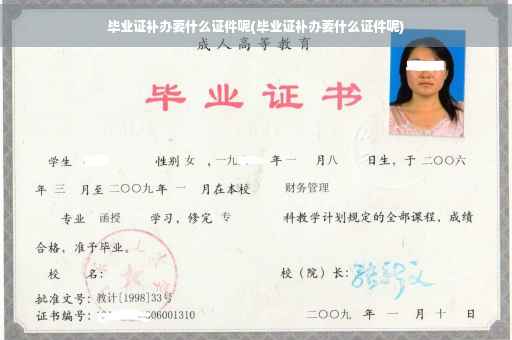 毕业证补办要什么证件呢(毕业证补办要什么证件呢)
成人高等教育
毕业证书
学生 性别 女 ,一九 年一 月八 日生,于二〇〇六
年 三 月至二〇〇九年 一 月在本校 财务管理
专业 函授 学习,修完 专 科教学计划规定的全部课程,成绩
合格,准予毕业。
校 名: 校(院)长:
批准文号:教计[1998]33号
证书编号: 06001310 二〇〇九 年 一 月 十 日